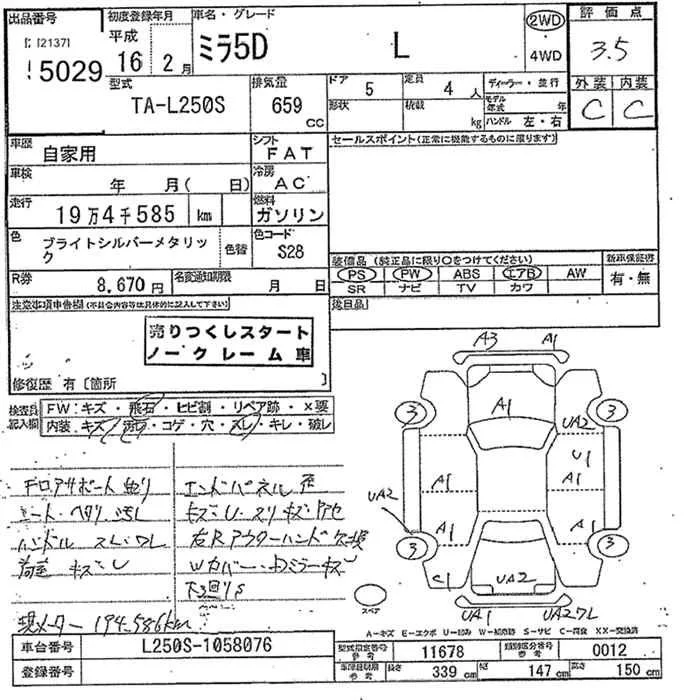 出品番号 初度登録年月 車名・グレード 2WD 評価点
[ [2137] 平成 16 2月 ミラ5D L 4WD 3.5
5029 型式 排気量 ドア 5 定員 4人 ディーラー・並行 外装 内装
TA-L250S 659 cc 形状 積載 kg モデル年式 年 ハンドル 左・右 C C
車歴 自家用 シフト FAT セールスポイント(正常に機能するものに限ります)
車検 年 月( 日) 冷房 AC
走行 19万4千585 km 燃料 ガソリン
色 ブライトシルバーメタリック 色替 色コード S28
装備品 (純正品に限り〇をつけてください) 新車保証書
PS PW ABS エアB AW 有・無
SR ナビ TV カワ
R券 8,670円 名変通知期限 月 日
注意事項申告欄(不具合内容等は具体的に記入して下さい)
売りつくしスタート
ノークレーム車
修復歴 有〔箇所 〕
検査員記入欄 FW:キズ・飛石・ヒビ割・リペア跡・×要
内装:キズ・汚レ・コゲ・穴・スレ・キレ・破レ
A3 A1
A1
3 3
UA2
A1 A1 U1
UA2 A1 A1
3 3
C1 UA2
UA1 UA2
スペア
ハンドル スレ
荷室 キズ
エンドパネル
右Rアウターハンドル欠損
現メーター 194,586km
A-キズ E-エクボ U-凹み W-補修跡 S-サビ C-腐食 XX-交換済
車台番号 L250S-1058076 型式指定番号 参考 11678 類別区分番号 参考 0012
登録番号 参考 長さ 339 cm 幅 147 cm 高さ 150 cm